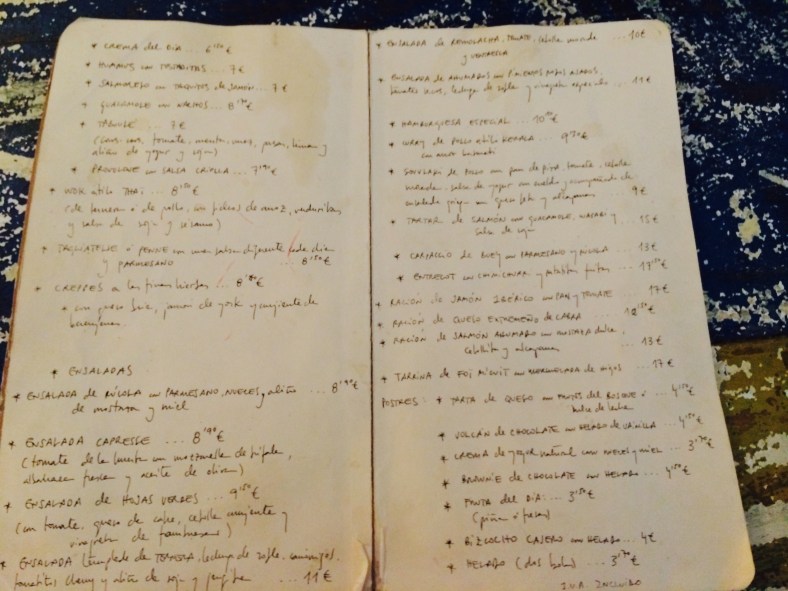 * CREMA DEL DÍA ... 6'50€
* HUMMUS con TOSTADITAS ... 7€
* SALMOREJO con TAQUITOS DE JAMÓN ... 7€
* GUACAMOLE con NACHOS ... 8'90€
* TABULE ... 7€
(cous-cous, tomate, menta, pasas, limón y
aliño de yogur y soja)
* PROVOLONE con SALSA CRIOLLA ... 7'90€
* WOK estilo THAI ... 8'50€
(de ternera ó de pollo, con fideos de arroz, verduritas
y salsa de soja y sésamo)
* TAGLIATELLE ó PENNE con una salsa diferente cada día
y PARMESANO ... 8'50€
* CREPPES a las finas hierbas ... 8'80€
* con queso brie, jamón de york y crujiente de
berenjenas.
* ENSALADAS
* ENSALADA DE RÚCOLA con PARMESANO, NUECES y aliño ... 8'90€
de mostaza y miel
* ENSALADA CAPRESSE ... 8'90€
(tomate de la huerta con mozzarella de búfala,
albahaca fresca y aceite de oliva)
* ENSALADA DE HOJAS VERDES ... 9'50€
(con tomate, queso de cabra, cebolla crujiente y
vinagreta de frambuesas)
* ENSALADA templada de TERNERA, lechuga de roble,
tomatitos cherry y aliño de soja y jengibre ... 11€
* ENSALADA DE REMOLACHA, TOMATE, cebolla morada ... 10€
y VENTRESCA
* ENSALADA DE AHUMADOS con PIMIENTOS ROJOS ASADOS,
tomates secos, lechuga de roble y vinagreta especial ... 11€
* HAMBURGUESA ESPECIAL ... 10'50€
* CURRY DE POLLO estilo KERALA ... 9'20€
con arroz basmati
* SOUVLAKI DE POLLO con pan de pita, tomate, cebolla
morada, salsa de yogur con eneldo y acompañado de
ensalada griega con queso feta y alcaparras ... 9€
* TARTAR DE SALMÓN con GUACAMOLE, WASABI y ... 15€
salsa de soja
* CARPACCIO DE BUEY con PARMESANO y RÚCULA ... 13€
* ENTRECOT con CHIMICHURRI y patatas fritas ... 17'50€
* RACIÓN DE JAMÓN IBÉRICO con PAN y TOMATE ... 17€
* RACIÓN DE QUESO EXTREMEÑO DE CABRA ... 12'50€
* RACIÓN DE SALMÓN AHUMADO con MOSTAZA DULCE,
cebollita y alcaparras ... 13€
* TARRINA DE FOI MICUIT con MERMELADA DE HIGOS ... 17€
POSTRES: * TARTA DE QUESO con FRUTOS DEL BOSQUE ó ... 4'50€
dulce de leche
* VOLCÁN DE CHOCOLATE con HELADO DE VAINILLA ... 4'50€
* CREMA DE yogur natural con NUECES y MIEL ... 3'70€
* BROWNIE DE CHOCOLATE con HELADO ... 4'50€
* FRUTA DEL DÍA: ... 3'50€
(piña ó fresas)
* BIZCOCHITO CASERO con HELADO ... 4€
* HELADO (dos bolas) ... 3'70€
I.V.A. INCLUIDO